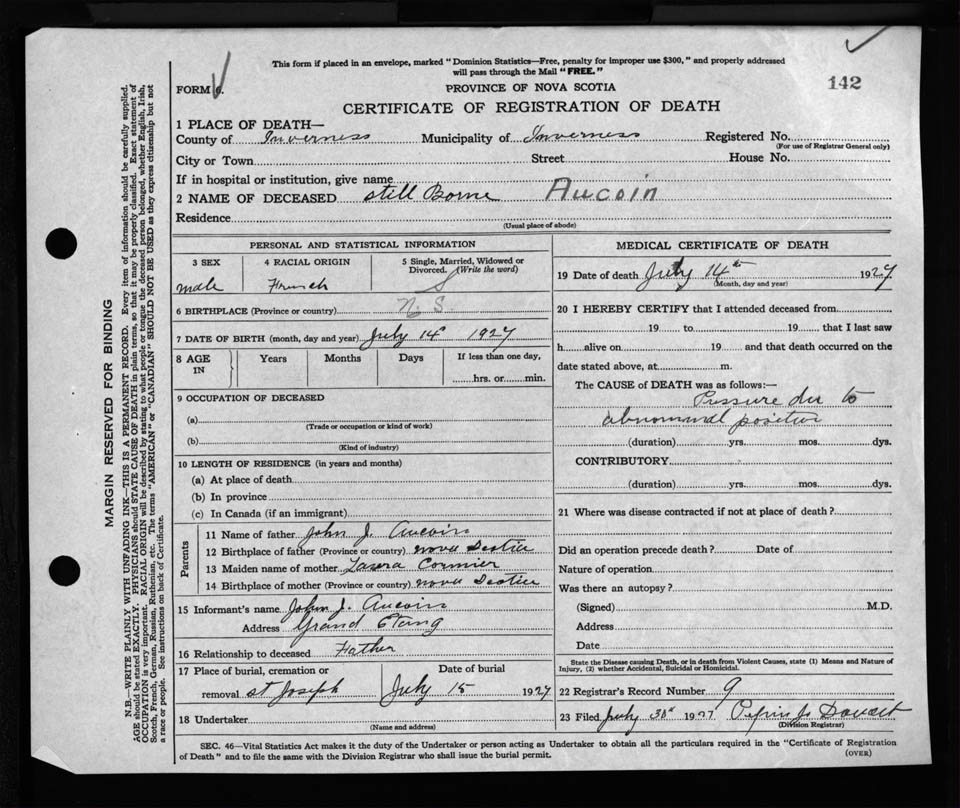 This form if placed in an envelope, marked "Dominion Statistics—Free, penalty for improper use $300," and properly addressed
will pass through the Mail "FREE."
142
FORM 6.
PROVINCE OF NOVA SCOTIA
CERTIFICATE OF REGISTRATION OF DEATH
1 PLACE OF DEATH—
County of Inverness Municipality of Inverness Registered No.
(For use of Registrar General only)
City or Town Street House No.
If in hospital or institution, give name
2 NAME OF DECEASED still Borne Aucoin
Residence
(Usual place of abode)
PERSONAL AND STATISTICAL INFORMATION
3 SEX 4 RACIAL ORIGIN 5 Single, Married, Widowed or
Divorced. (Write the word)
male French S
6 BIRTHPLACE (Province or country) N S.
7 DATE OF BIRTH (month, day and year) July 14 1927
8 AGE IN Years Months Days If less than one day,
hrs. or min.
9 OCCUPATION OF DECEASED
(a)
(Trade or occupation or kind of work)
(b)
(Kind of industry)
10 LENGTH OF RESIDENCE (in years and months)
(a) At place of death
(b) In province
(c) In Canada (if an immigrant)
Parents
11 Name of father John J. Aucoin
12 Birthplace of father (Province or country) nova Scotia
13 Maiden name of mother Laura Cormier
14 Birthplace of mother (Province or country) nova Scotia
15 Informant's name John J. Aucoin
Address Grand Etang
16 Relationship to deceased Father
17 Place of burial, cremation or Date of burial
removal St Joseph July 15 1927
18 Undertaker
(Name and address)
MEDICAL CERTIFICATE OF DEATH
19 Date of death July 14th 1927
(Month, day and year)
20 I HEREBY CERTIFY that I attended deceased from
19 to 19 that I last saw
h alive on 19 and that death occurred on the
date stated above, at m.
The CAUSE of DEATH was as follows:—
Pressure du to
abnormal position
(duration) yrs. mos. dys.
CONTRIBUTORY
(duration) yrs. mos. dys.
21 Where was disease contracted if not at place of death?
Did an operation precede death? Date of
Nature of operation
Was there an autopsy?
(Signed) M.D.
Address
Date
State the Disease causing Death, or in death from Violent Causes, state (1) Means and Nature of
Injury, (2) whether Accidental, Suicidal or Homicidal.
22 Registrar's Record Number 9
23 Filed July 30th 1927
(Division Registrar)
SEC. 46—Vital Statistics Act makes it the duty of the Undertaker or person acting as Undertaker to obtain all the particulars required in the "Certificate of Registration
of Death" and to file the same with the Division Registrar who shall issue the burial permit. (OVER)
MARGIN RESERVED FOR BINDING
N.B.—WRITE PLAINLY WITH UNFADING INK—THIS IS A PERMANENT RECORD. Every item of information should be carefully supplied.
AGE should be stated EXACTLY. PHYSICIANS should STATE CAUSE OF DEATH in plain terms, so that it may be properly classified. Exact statement of
OCCUPATION is very important. RACIAL ORIGIN will be described by stating to what people or tongue the deceased person belonged, whether English, Irish,
Scotch, French, German, Russian, Ruthenian, etc. The terms "AMERICAN" or "CANADIAN" SHOULD NOT BE USED as they express citizenship but not
a race or people. See instructions on back of Certificate.